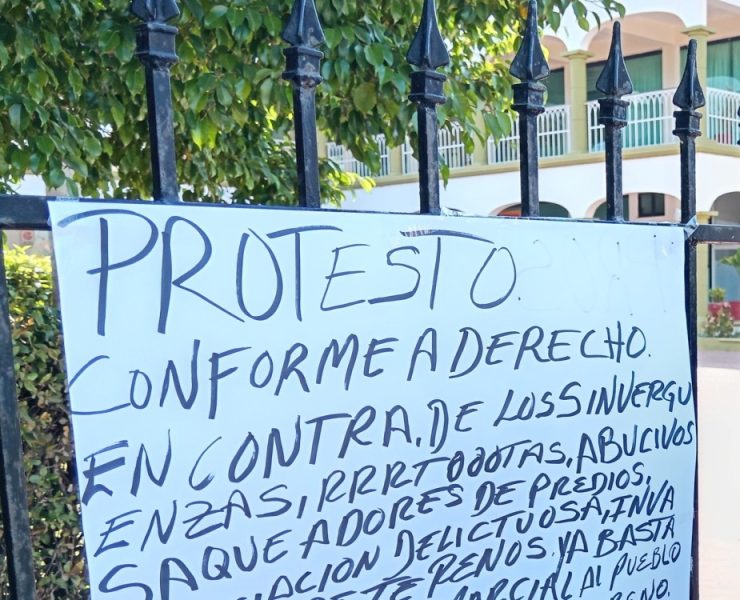 PROTESTO.
CONFORME A DERECHO.
EN CONTRA, DE LOS SINVERGU
ENZAS, RRRTOOOTAS, ABUCIVOS
SAQUEADORES DE PREDIOS,
DELICTUOSA, INVA
YA BASTA
AL PUEBLO